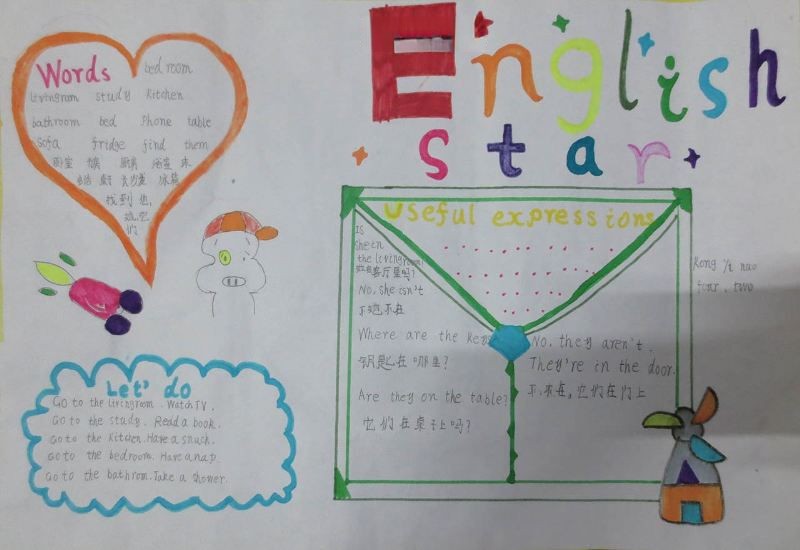 English
star
Words
bedroom
livingroom study Kitchen
bathroom bed Phone table
Sofa fridge find them
床
冰箱
找到 他,
她,它
们
Useful expressions
Is
she in
the livingroom?
她在客厅里吗?
No, she isn't
不,她不在
Where are the keys
钥匙在哪里?
Are they on the table?
它们在桌子上吗?
No, they aren't.
They're in the door.
不,不在,它们在门上
Let' do
Go to the livingroom. Watch TV.
Go to the study. Read a book.
Go to the Kitchen. Have a snack.
Go to the bedroom. Have a nap.
Go to the bathrom. Take a shower.
four, two